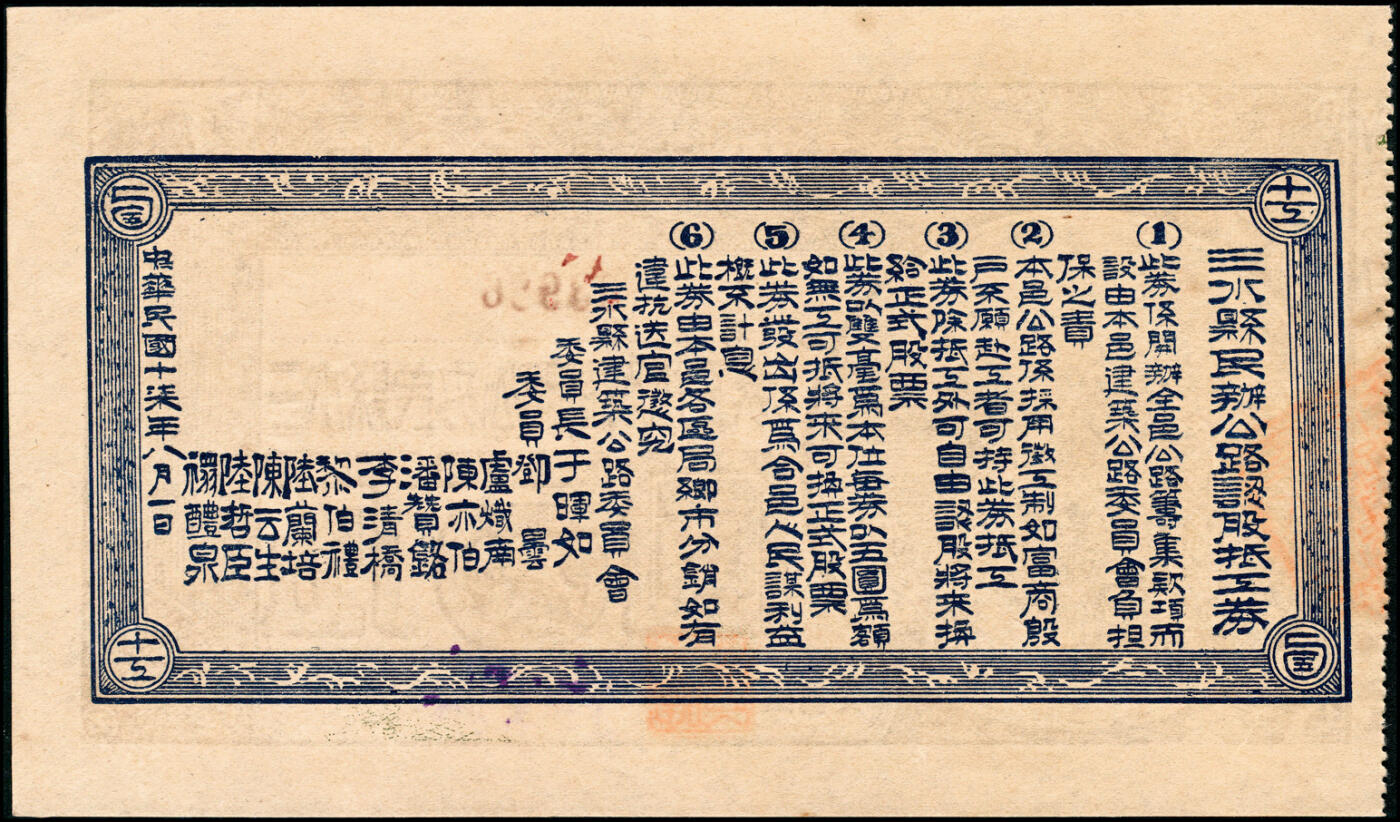 三水縣民辦公路認股抵工券
(1)此券係開辦全邑公路籌集欵項而
設由本邑建築公路委員會負担
保之責
(2)本邑公路係採用徵工制如富商殷
戶不願赴工者可持此券抵工
(3)此券除抵工外可自由認股將來換
給正式股票
(4)此券以雙毫爲本位每券以五圓爲額
如無工可抵將來可換正式股票
(5)此券發出係爲合邑人民謀利益
概不計息
(6)此券由本邑各區局鄉市分銷如有
違抗送官懲究
三水縣建築公路委員會
委員長于暉如
委員鄧曇
盧熾南
陳亦伯
潘贊銘
李清橋
黎伯禮
陸蘭培
陳云生
陸哲臣
禤醴泉
中華民國十柒年八月一日
十工
五圓
十工
五圓